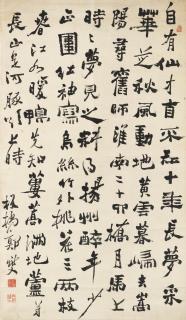 自有仙才自不知十年長夢采
華芝秋風動地黃雲暮歸去嵩
陽尋舊師淮南二十四橋月馬上
時時夢見之料得揚州醉年少
正圍紅袖寫烏絲竹外桃花三兩枝
春江水暖鴨先知蔞蒿滿地蘆芽
正是河豚欲上時
板橋鄭燮